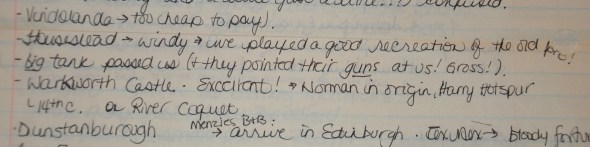 confused.
- Vindolanda → too cheap to pay).
- Housestead → windy → we played a good recreation of the old fort!
- Big tank passed us (+ they pointed their guns at us! Gross!).
- Warkworth Castle. Excellent! → Norman in origin, Harry Hotspur
14th c. on River Coquet
- Dunstanburough Menzies B+B: → arrive in Edinburgh. → bloody